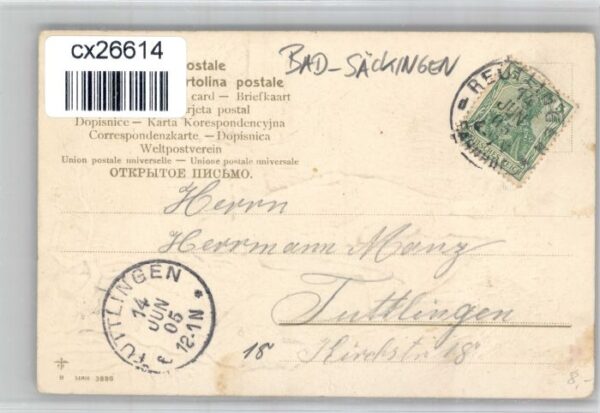 cx26614
BAD-SÄCKINGEN
postale
cartolina postale
card — Briefkaart
rjeta postal
Dopisnice — Karta Korespondencyjna
Correspondenzkarte — Dopisnica
Weltpostverein
Union postale universelle — Unione postale universale
ОТКРЫТОЕ ПИСЬМО.
REUTLINGEN
14
JUN
05
Herrn
Herrmann Manz
Tuttlingen
18 Kirchstr 18
TUTTLINGEN
14
JUN
05
12-1N
8,-